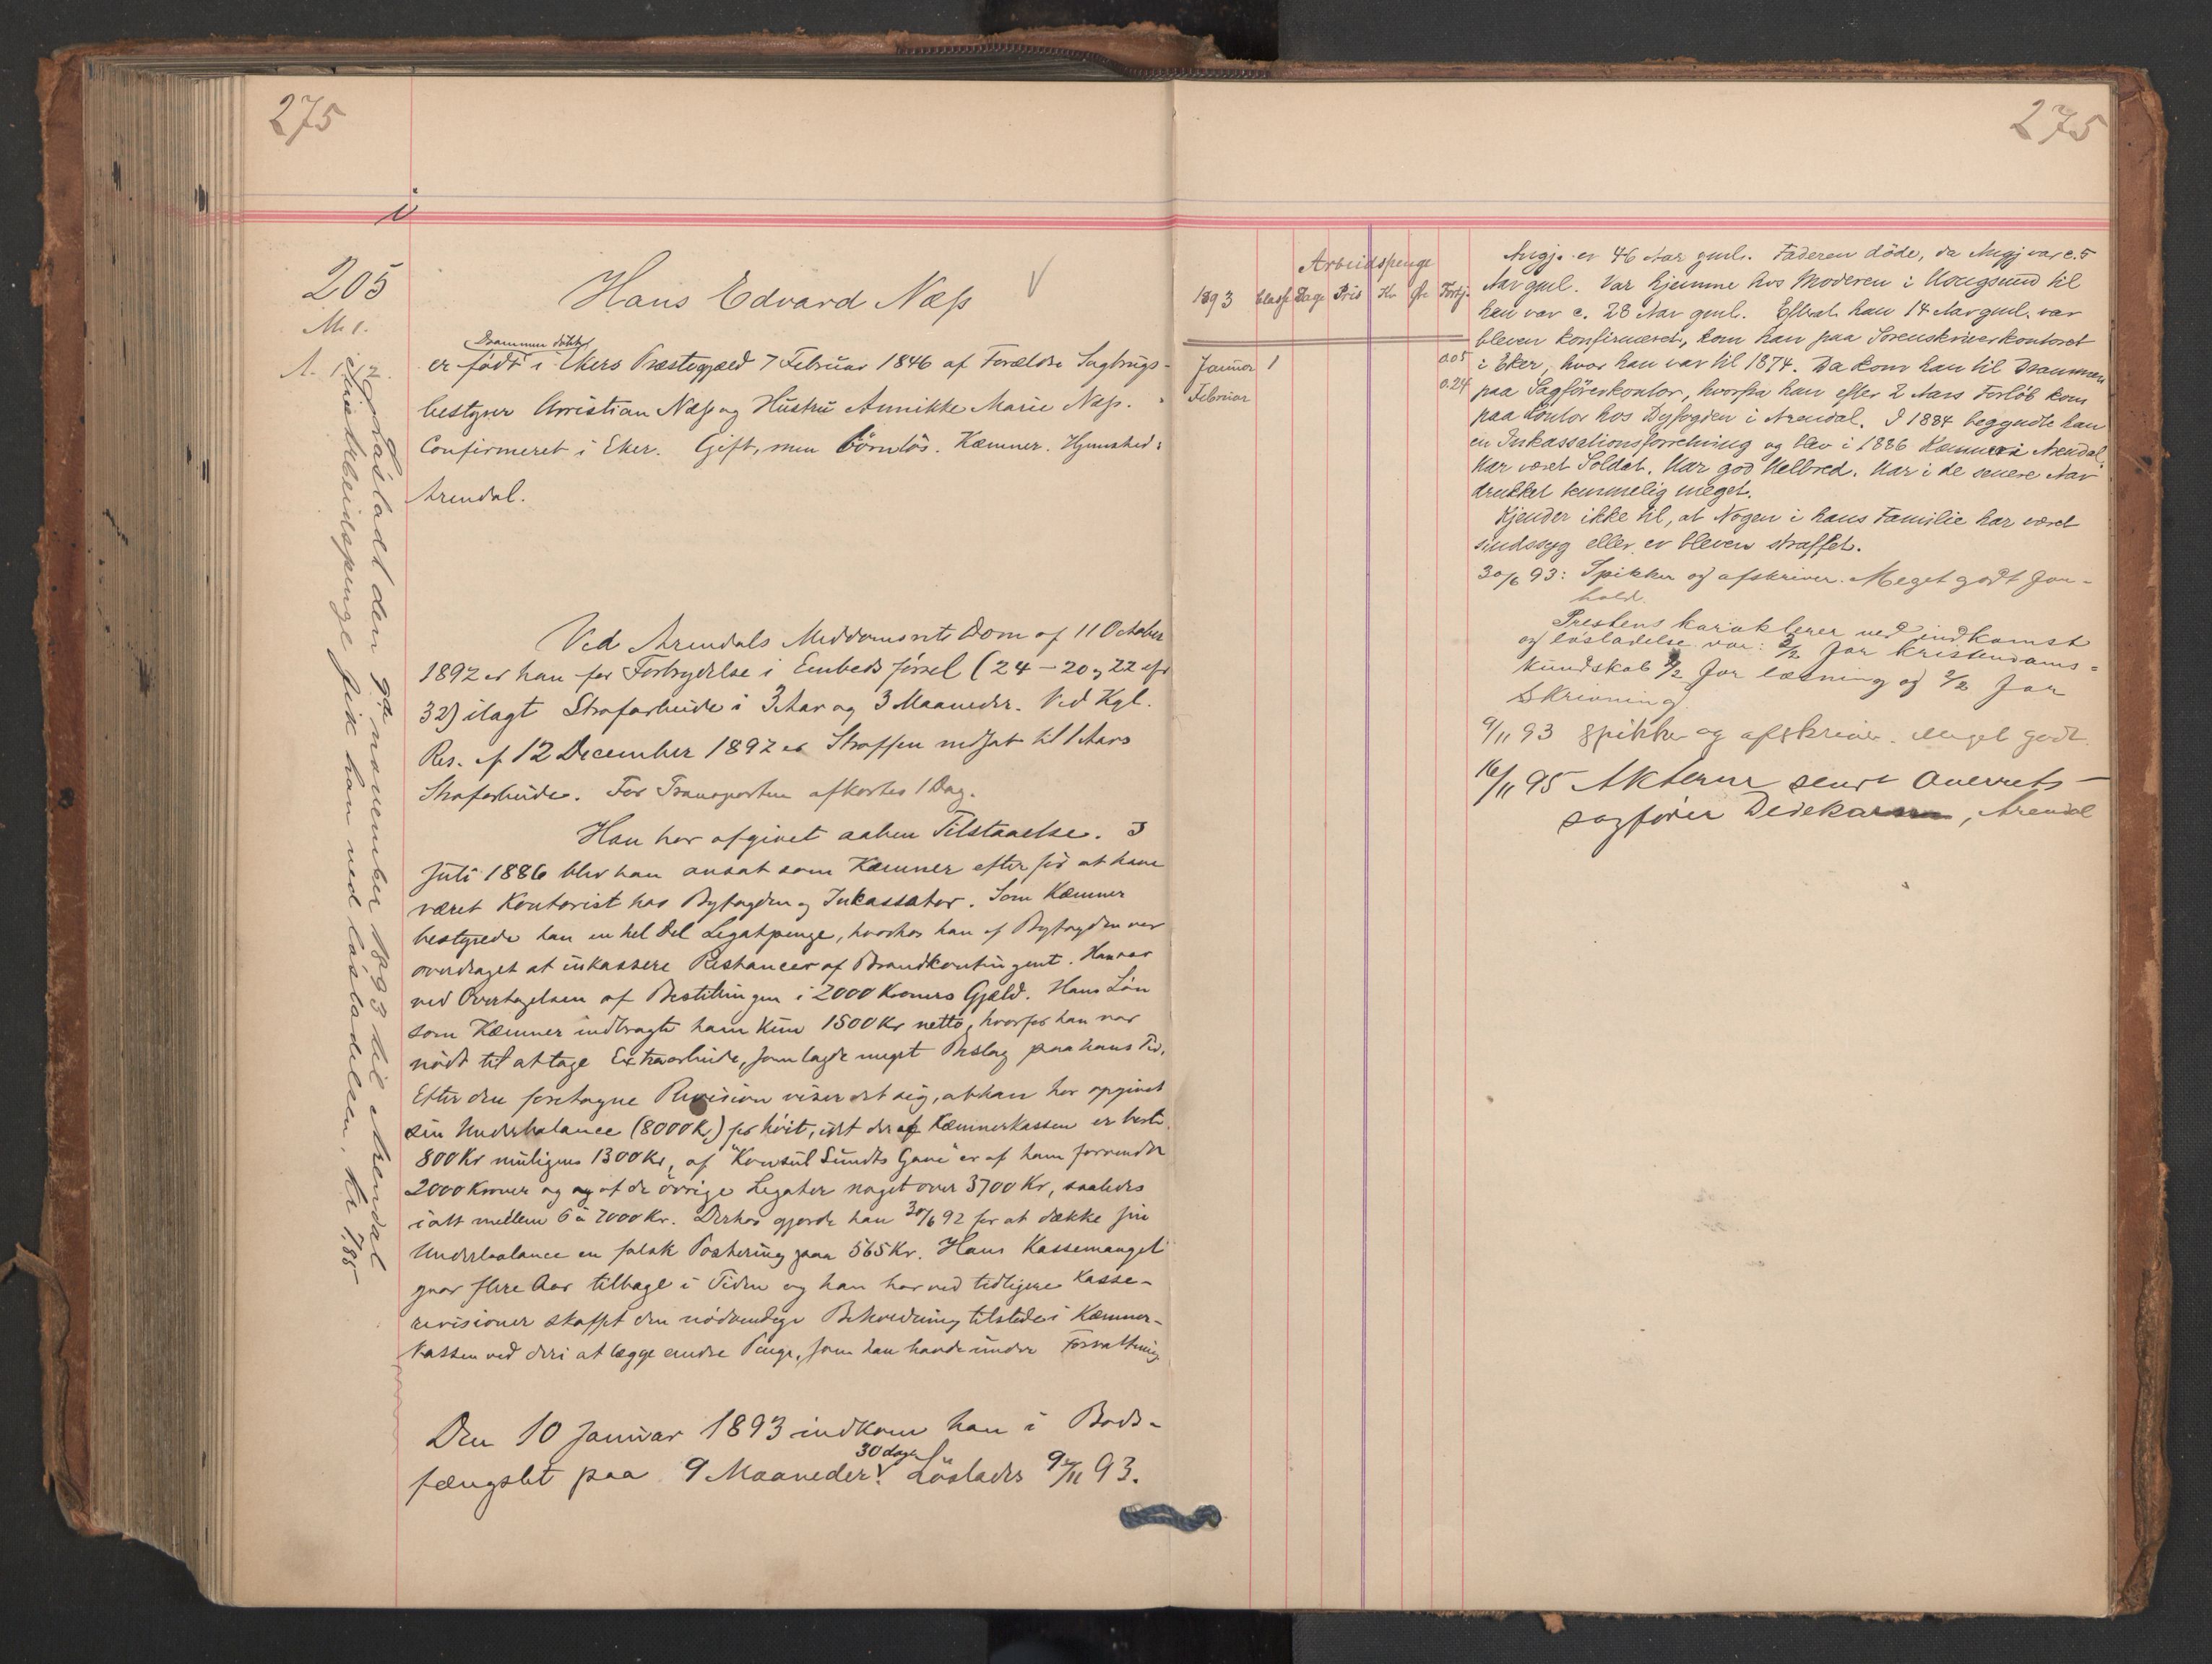 275
i
205
M. 1.
A. 1.12.
Hans Edvard Næss V
Drammen döbt
er født i Ekers Præstegjæld 7 Februar 1846 af Forældre Sagbrugs-
bestyrer Christian Næss og Hustru Annikke Marie Næss.
Confirmeret i Eker. Gift, men börnlös. Kæmner. Hjemsted:
Arendal.
Ved Arendals Meddomsrets Dom af 11 October
1892 er han for Forbrydelse i Embedsförsel (24 – 20, 22 cfr
32) ilagt Strafarbeide i 3 Aar og 3 Maaneder. Ved Kgl.
Res. af 12 December 1892 er Straffen nedsat til 1 Aars
Strafarbeide. For Transporten afkortes 1 Dag.
Han har afgivet aaben Tilstaaelse. I
Juli 1886 blev han ansat som Kæmner efter för at have
været Kontorist hos Byfogden og Inkassator. Som Kæmner
bestyrede han en hel Del Legatpenge, hvorhos han af Byfogden var
overdraget at inkassere Restancer af Brandkontingent. Han var
ved Overtagelsen af Bestillingen i 2000 Kroners Gjæld. Hans Lön
som Kæmner indbragte ham kun 1500 Kr netto, hvorfor han var
nödt til at tage Extraarbeide, som lagde meget Beslag paa hans Tid.
Efter den foretagne Revision viser det sig, at han har opgivet
sin Underbalance (8000 Kr) for höit, idet der af Kæmnerkassen er
800 Kr muligens 1300 Kr, af "Konsul Sundts Gave" er af ham forvendt
2000 Kroner og af de övrige Legater noget over 3700 Kr, saaledes
ialt mellem 6 à 7000 Kr. Derhos gjorde han 30/6 92 for at dække sin
Underbalance en falsk Postering paa 565 Kr. Hans Kassemangel
gaar flere Aar tilbage i Tiden og han har ved tidligere Kasse-
revisioner skaffet den nödvendige Beholdning tilstede i Kæmner-
kassen ved deri at lægge andre Penge, som han havde under Forvaltning
Den 10 Januar 1893 indkom han i Bods-
30 dage
fængslet paa 9 Maaneder V. Löslades 9/11 93.
Lösladt den 9de november 1893 til Arendal
sine Arbeidspenge fik han ved lösladelsen, Kr 7,85
275
Arbeidspenge
1893 Classe Dage Pris Kr Øre Fortj.
Januar 1 0.05
Februar 0.24
Angj. er 46 Aar gml. Faderen döde, da Angj var c. 5
Aar gml. Var hjemme hos Moderen i Hougsund til
han var c. 28 Aar gml. Efterat han 14 Aar gml. var
bleven konfirmeret, kom han paa Sorenskriverkontoret
i Eker, hvor han var til 1874. Da kom han til Drammen
paa Sagförerkontor, hvorfra han efter 2 Aars Forlöb kom
paa Kontor hos Byfogden i Arendal. I 1884 begyndte han
en Inkassationsforretning og blev i 1886 Kæmner i Arendal.
Har været Soldat. Har god Helbred. Har i de senere Aar
drukket temmelig meget.
Kjender ikke til, at Nogen i hans Familie har været
sindssyg eller er bleven straffet.
30/6 93: Spikker og afskriver. Meget godt For-
hold.
Prestens karakterer ved indkomst
og lösladelse var: 2/2 for kristendoms-
kundskab 2/2 for læsning og 2/2 for
Skrivning.
9/11 93 spikker og afskriver. Meget godt.
16/11 95 Akterne sendt Overrets-
sagförer Dedekam, Arendal